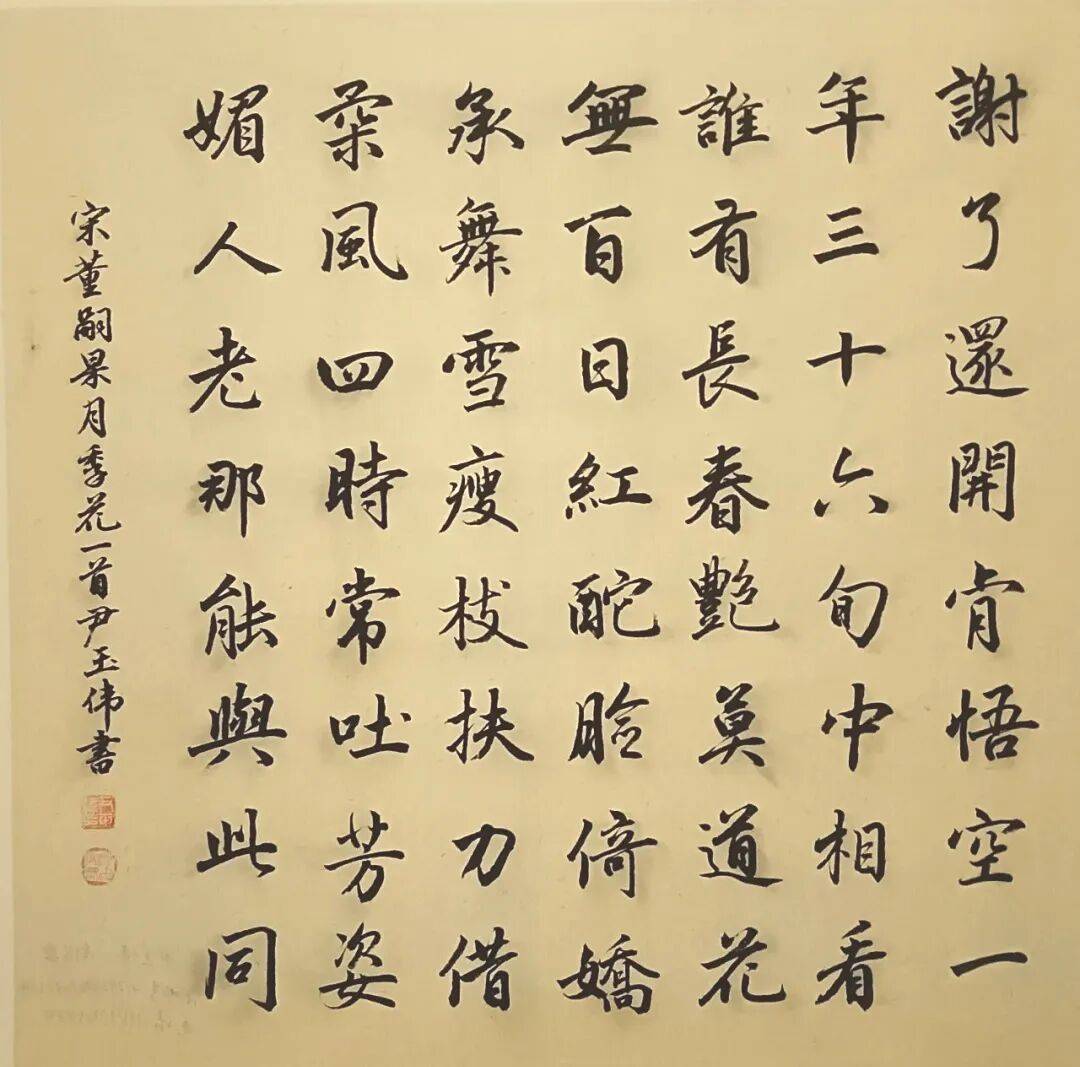 謝了還開肯悟空一
年三十六旬中相看
誰有長春艷莫道花
無百日紅酡臉倚嬌
承舞雪瘦枝扶力借
柔風四時常吐芳姿
媚人老那能與此同
宋董嗣杲月季花一首尹玉伟書